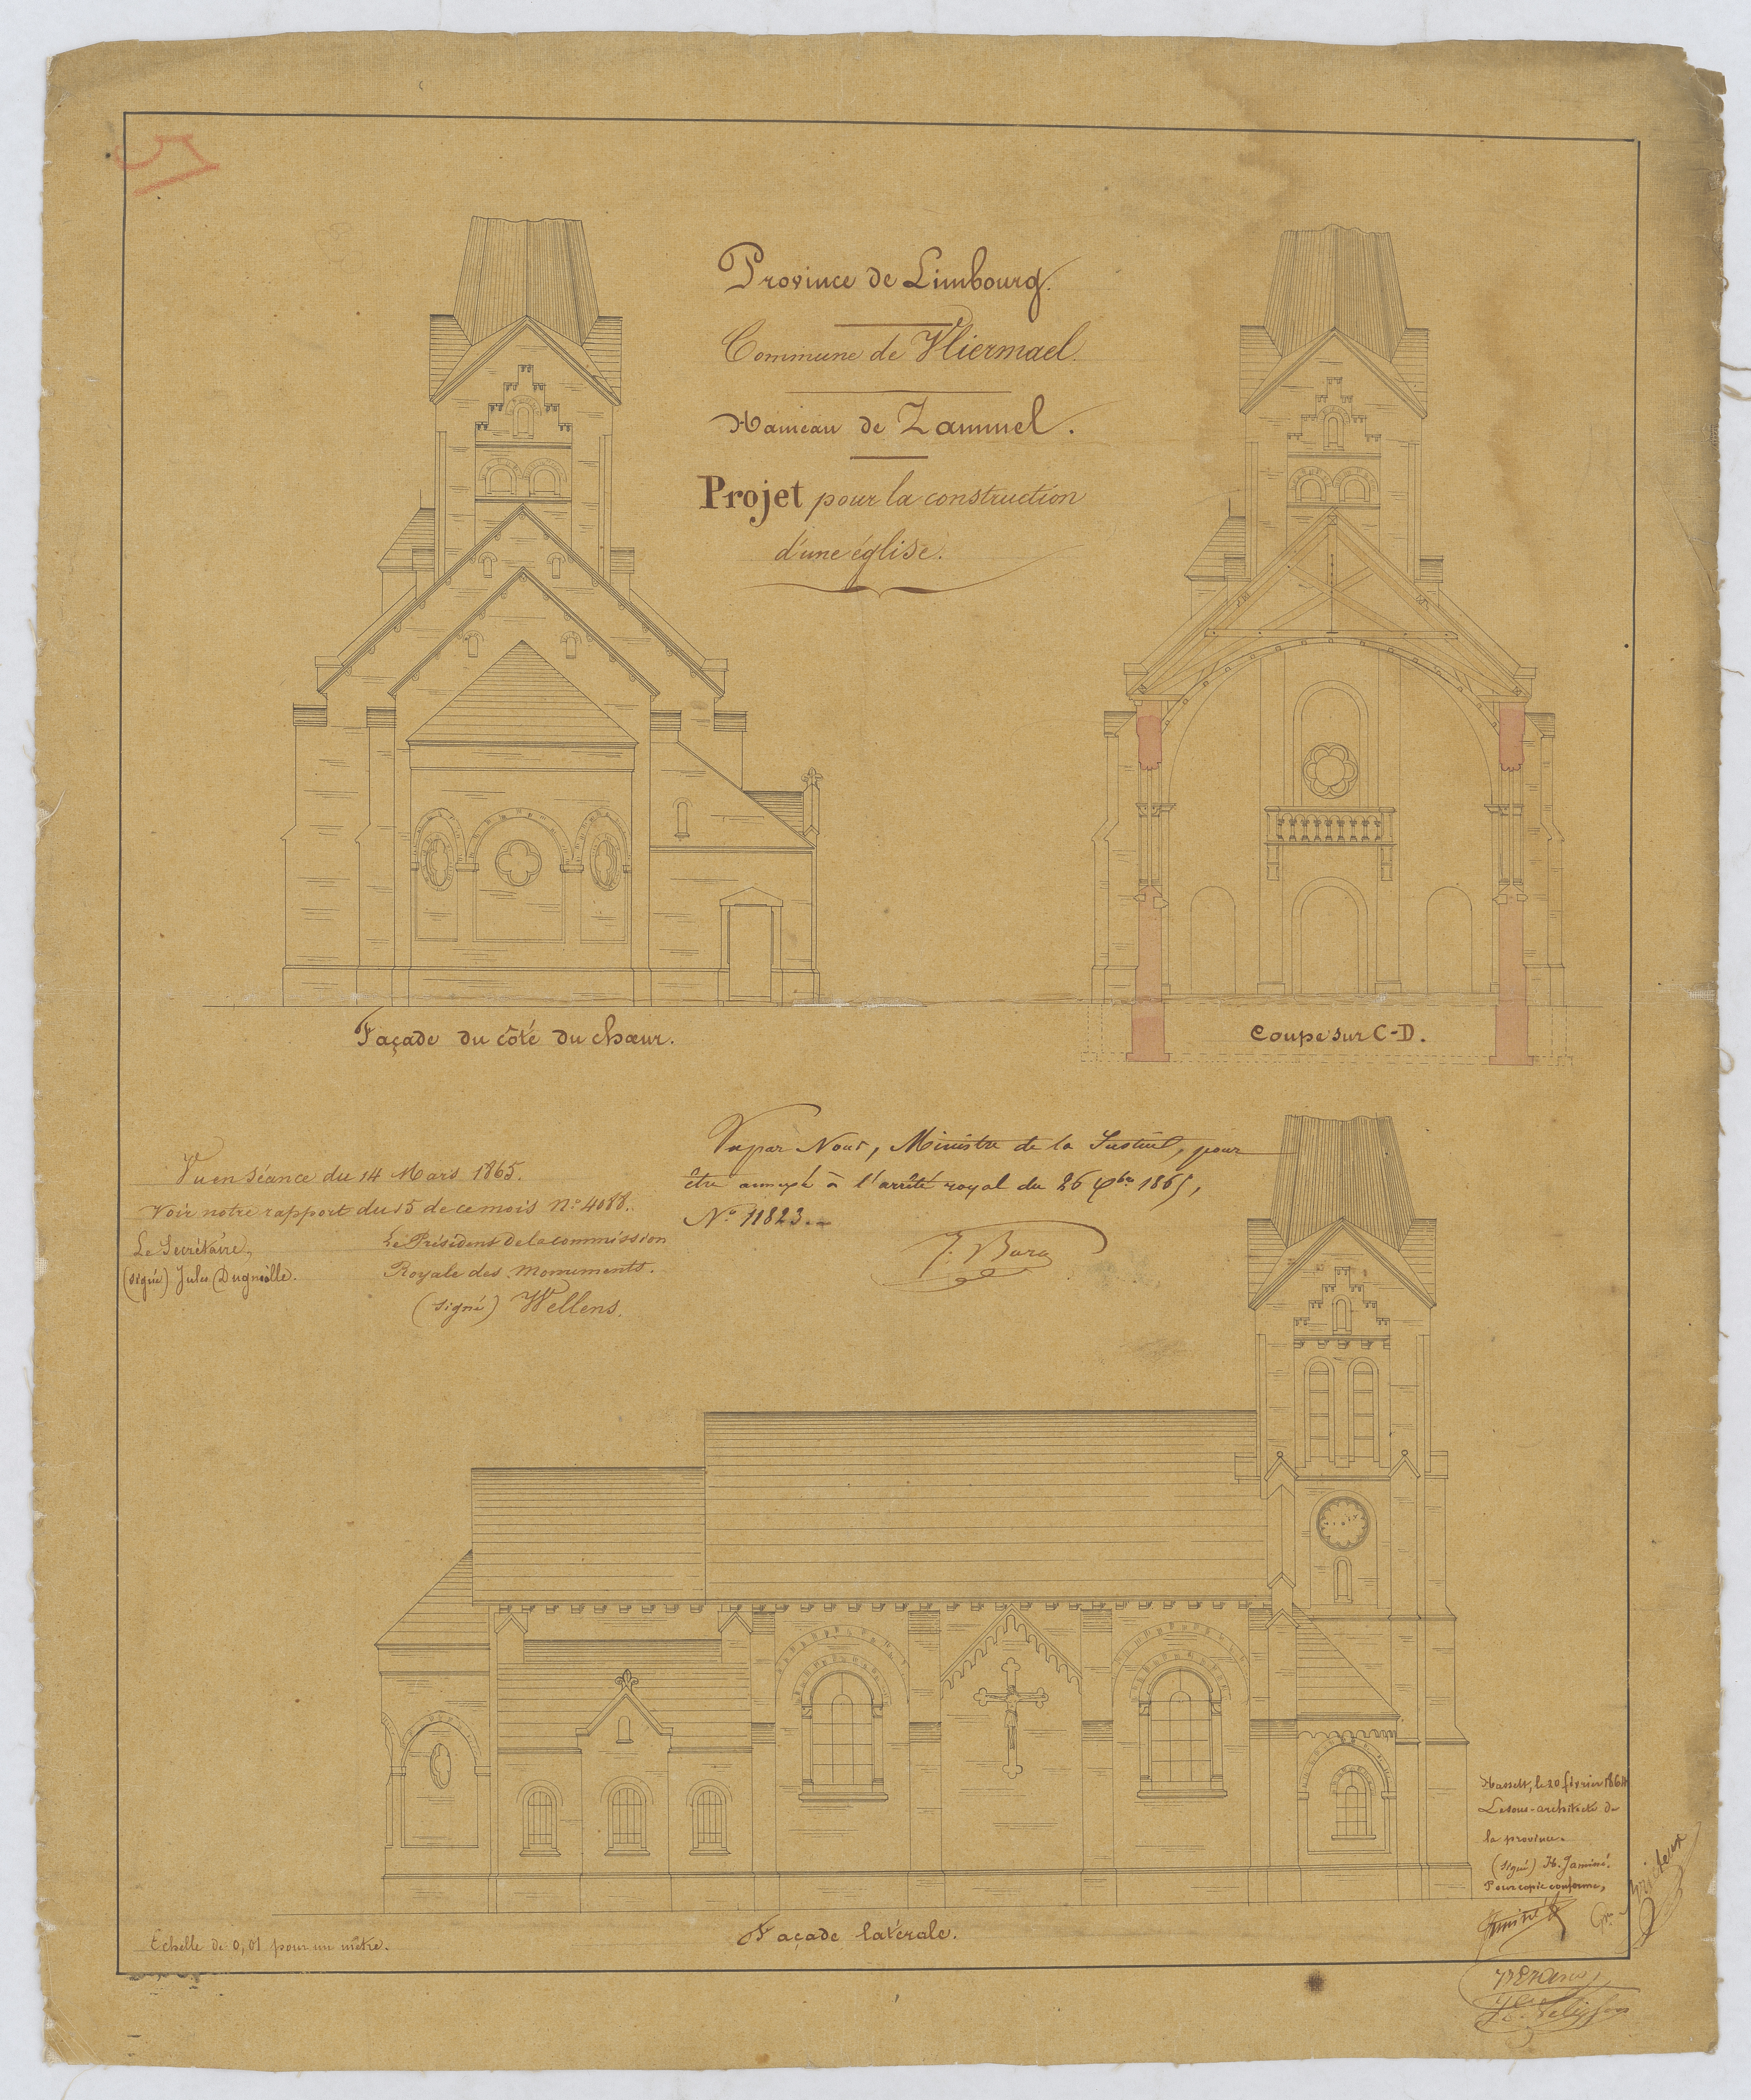 Province de Limbourg.
Commune de Vliermael.
Hameau de Zammel.
Projet pour la construction
d'une église.
Façade du côté du chœur.
Coupe sur C-D.
Vu en séance du 14 Mars 1865.
Voir notre rapport du 15 de ce mois N.º 4088.
Le Secrétaire,
(signé) Jules Dugniolle.
Le Président de la commission
Royale des Monuments.
(signé) Wellens.
Vu par Nous, Ministre de la Justice, pour
être annexé à l'arrêté royal du 26 9bre 1865,
Nº 11823.
J. Bara
Hasselt, le 20 février 1864
Le sous-architecte de
la province.
(signé) H. Jaminé.
Pour copie conforme,
Jaminé
Façade latérale.
Echelle de 0,01 pour un mètre.